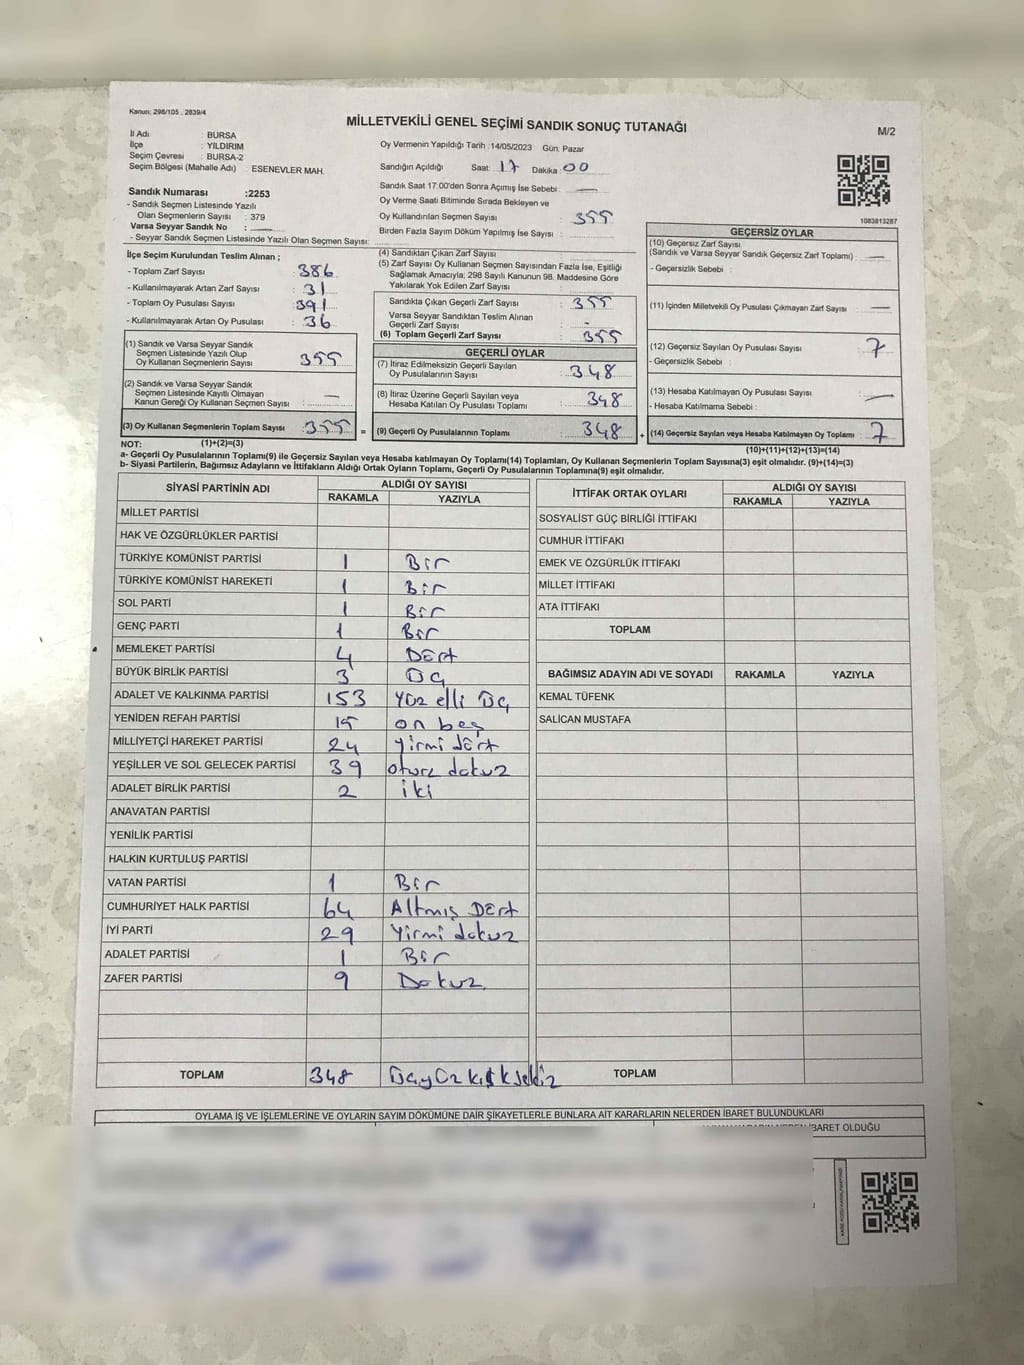 Kanun: 298/105 , 2839/4
MİLLETVEKİLİ GENEL SEÇİMİ SANDIK SONUÇ TUTANAĞI
M/2
İl Adı : BURSA
İlçe : YILDIRIM
Seçim Çevresi : BURSA-2
Seçim Bölgesi (Mahalle Adı) : ESENEVLER MAH.
Sandık Numarası :2253
- Sandık Seçmen Listesinde Yazılı
Olan Seçmenlerin Sayısı : 379
Varsa Seyyar Sandık No :
- Seyyar Sandık Seçmen Listesinde Yazılı Olan Seçmen Sayısı:
Oy Vermenin Yapıldığı Tarih :14/05/2023 Gün: Pazar
Sandığın Açıldığı Saat: 17 Dakika : 00
Sandık Saat 17:00'den Sonra Açımış İse Sebebi : —
Oy Verme Saati Bitiminde Sırada Bekleyen ve
Oy Kullandırılan Seçmen Sayısı : 355
Birden Fazla Sayım Döküm Yapılmış İse Sayısı :
1083813287
İlçe Seçim Kurulundan Teslim Alınan ;
- Toplam Zarf Sayısı : 386
- Kullanılmayarak Artan Zarf Sayısı : 31
- Toplam Oy Pusulası Sayısı : 391
- Kullanılmayarak Artan Oy Pusulası : 36
(1) Sandık ve Varsa Seyyar Sandık
Seçmen Listesinde Yazılı Olup
Oy Kullanan Seçmenlerin Sayısı : 355
(2) Sandık ve Varsa Seyyar Sandık
Seçmen Listesinde Kayıtlı Olmayan
Kanun Gereği Oy Kullanan Seçmen Sayısı : —
(3) Oy Kullanan Seçmenlerin Toplam Sayısı : 355
(4) Sandıktan Çıkan Zarf Sayısı :
(5) Zarf Sayısı Oy Kullanan Seçmen Sayısından Fazla İse, Eşitliği
Sağlamak Amacıyla; 298 Sayılı Kanunun 98. Maddesine Göre
Yakılarak Yok Edilen Zarf Sayısı :
Sandıkta Çıkan Geçerli Zarf Sayısı : 355
Varsa Seyyar Sandıktan Teslim Alınan
Geçerli Zarf Sayısı : -
(6) Toplam Geçerli Zarf Sayısı : 355
GEÇERLİ OYLAR
(7) İtiraz Edilmeksizin Geçerli Sayılan
Oy Pusulalarının Sayısı : 348
(8) İtiraz Üzerine Geçerli Sayılan veya
Hesaba Katılan Oy Pusulası Toplamı : 348
= (9) Geçerli Oy Pusulalarının Toplamı : 348
GEÇERSİZ OYLAR
(10) Geçersiz Zarf Sayısı
(Sandık ve Varsa Seyyar Sandık Geçersiz Zarf Toplamı) : —
- Geçersizlik Sebebi :
(11) İçinden Milletvekili Oy Pusulası Çıkmayan Zarf Sayısı : —
(12) Geçersiz Sayılan Oy Pusulası Sayısı : 7
- Geçersizlik Sebebi :
(13) Hesaba Katılmayan Oy Pusulası Sayısı : —
- Hesaba Katılmama Sebebi :
+ (14) Geçersiz Sayılan veya Hesaba Katılmayan Oy Toplamı : 7
NOT: (1)+(2)=(3)
(10)+(11)+(12)+(13)=(14)
a- Geçerli Oy Pusulalarının Toplamı(9) ile Geçersiz Sayılan veya Hesaba Katılmayan Oy Toplamı(14) Toplamları, Oy Kullanan Seçmenlerin Toplam Sayısına(3) eşit olmalıdır. (9)+(14)=(3)
b- Siyasi Partilerin, Bağımsız Adayların ve İttifakların Aldığı Ortak Oyların Toplamı, Geçerli Oy Pusulalarının Toplamına(9) eşit olmalıdır.
SİYASİ PARTİNİN ADI ALDIĞI OY SAYISI
RAKAMLA YAZIYLA
MİLLET PARTİSİ
HAK VE ÖZGÜRLÜKLER PARTİSİ
TÜRKİYE KOMÜNİST PARTİSİ 1 Bir
TÜRKİYE KOMÜNİST HAREKETİ 1 Bir
SOL PARTİ 1 Bir
GENÇ PARTİ 1 Bir
MEMLEKET PARTİSİ 4 Dört
BÜYÜK BİRLİK PARTİSİ 3 Üç
ADALET VE KALKINMA PARTİSİ 153 Yüz elli Üç
YENİDEN REFAH PARTİSİ 15 on beş
MİLLİYETÇİ HAREKET PARTİSİ 24 yirmi dört
YEŞİLLER VE SOL GELECEK PARTİSİ 39 otuz dokuz
ADALET BİRLİK PARTİSİ 2 iki
ANAVATAN PARTİSİ
YENİLİK PARTİSİ
HALKIN KURTULUŞ PARTİSİ
VATAN PARTİSİ 1 Bir
CUMHURİYET HALK PARTİSİ 64 Altmış Dört
İYİ PARTİ 29 Yirmi dokuz
ADALET PARTİSİ 1 Bir
ZAFER PARTİSİ 9 Dokuz
TOPLAM 348
İTTİFAK ORTAK OYLARI ALDIĞI OY SAYISI
RAKAMLA YAZIYLA
SOSYALIST GÜÇ BİRLİĞİ İTTİFAKI
CUMHUR İTTİFAKI
EMEK VE ÖZGÜRLÜK İTTİFAKI
MİLLET İTTİFAKI
ATA İTTİFAKI
TOPLAM
BAĞIMSIZ ADAYIN ADI VE SOYADI RAKAMLA YAZIYLA
KEMAL TÜFENK
SALİCAN MUSTAFA
TOPLAM
OYLAMA İŞ VE İŞLEMLERİNE VE OYLARIN SAYIM DÖKÜMÜNE DAİR ŞİKAYETLERLE BUNLARA AİT KARARLARIN NELERDEN İBARET BULUNDUKLARI
İBARET OLDUĞU